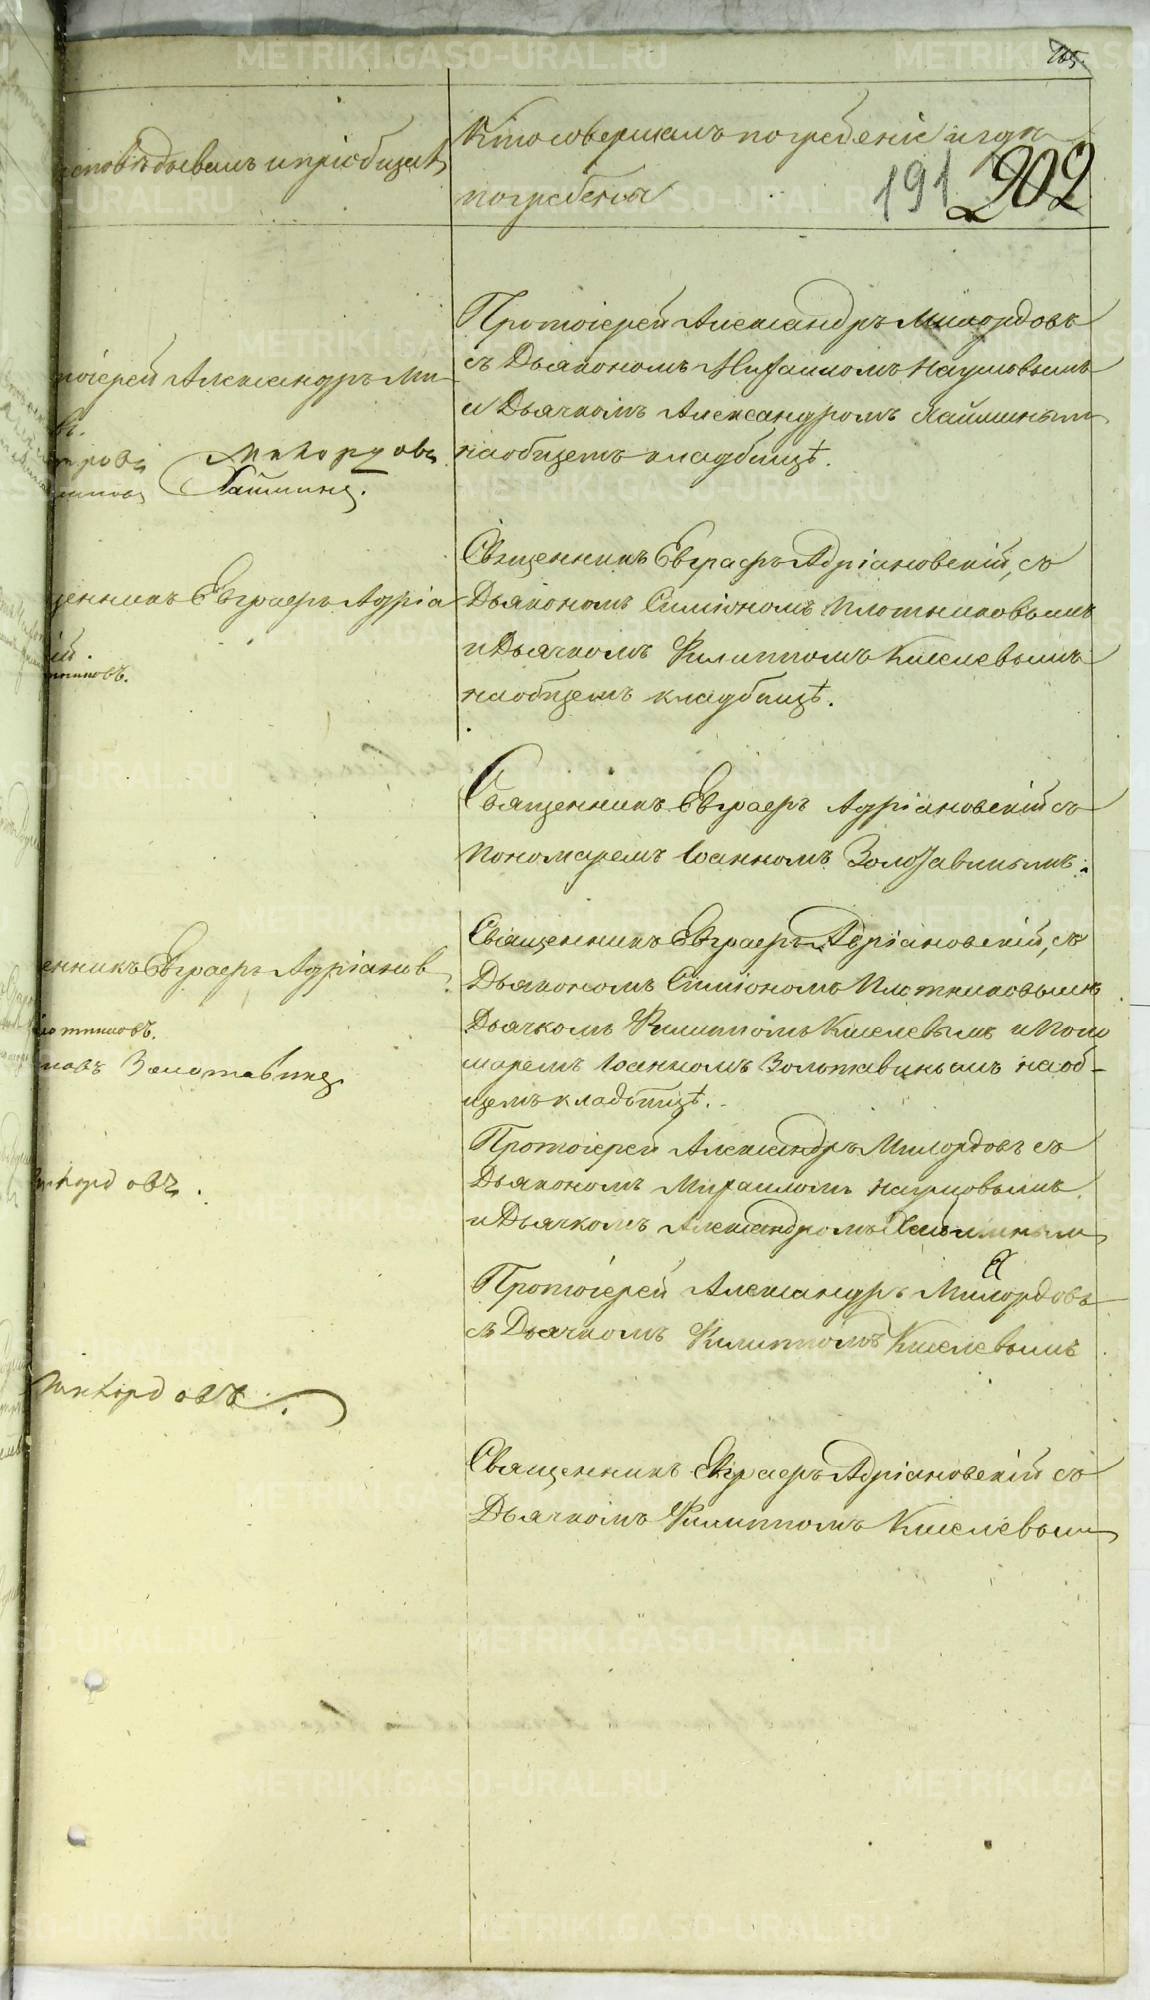 165.
исповѣдывалъ и пріобщалъ
Кто совершалъ погребеніе и гдѣ
погребены
191 202
Протоіерей Александръ Милордовъ
съ Дьякономъ Михаиломъ Наумовымъ
и Дьячкомъ Александромъ Хайминымъ
на общемъ кладбищѣ.
тоіерей Александръ Ми-
въ.
Милордовъ
Хайминъ.
Священникъ Евграфъ Адріановскій, съ
Дьякономъ Симіономъ Плотниковымъ
и Дьячкомъ Филиппомъ Киселевымъ
на общемъ кладбищѣ.
щенникъ Евграфъ Адріа
ій.
тниковъ.
Священникъ Евграфъ Адріановскій съ
Пономаремъ Іоанномъ Золотавинымъ.
Священникъ Евграфъ Адріановскій, съ
Дьякономъ Симіономъ Плотниковымъ
Дьячкомъ Филиппомъ Киселевымъ и Поно
маремъ Іоанномъ Золотавинымъ на об-
щемъ кладбищѣ.
енникъ Евграфъ Адріанов
лотниковъ.
новъ Золотавинъ
Протоіерей Александръ Милордовъ съ
Дьякономъ Михаиломъ Наумовымъ
и Дьячкомъ Александромъ Хайминымъ
илордовъ.
Протоіерей Александръ Милордовъ
съ Дьячкомъ Филиппомъ Киселевымъ
Милордовъ.
Священникъ Евграфъ Адріановскій съ
Дьячкомъ Филиппомъ Киселевымъ
METRIKI.GASO-URAL.RU